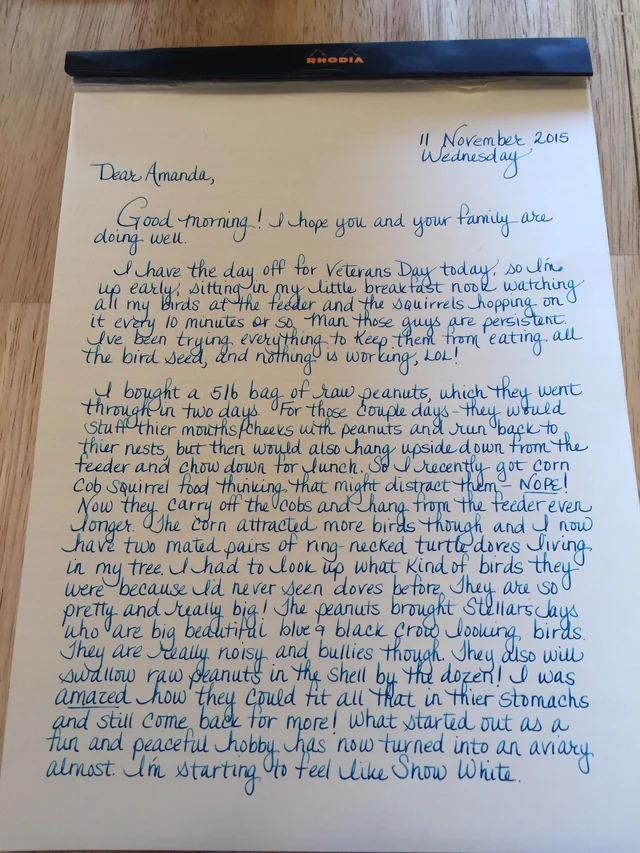 RHODIA
11 November 2015
Wednesday
Dear Amanda,
Good morning! I hope you and your family are
doing well.
I have the day off for Veterans Day today, so I'm
up early, sitting in my little breakfast nook watching
all my birds at the feeder and the squirrels hopping on
it every 10 minutes or so. Man those guys are persistent.
I've been trying everything to keep them from eating all
the bird seed, and nothing is working, LOL!
I bought a 5lb bag of raw peanuts, which they went
through in two days. For those couple days - they would
stuff thier mouths/cheeks with peanuts and run back to
thier nests, but then would also hang upside down from the
feeder and chow down for lunch. So I recently got corn
cob squirrel food thinking that might distract them - NOPE!
Now they carry off the cobs and hang from the feeder even
longer. The corn attracted more birds though and I now
have two mated pairs of ring-necked turtle doves living
in my tree. I had to look up what kind of birds they
were because I'd never seen doves before. They are so
pretty and really big! The peanuts brought Stellars Jays
who are big beautiful blue & black crow looking birds.
They are really noisy and bullies though. They also will
swallow raw peanuts in the shell by the dozen! I was
amazed how they could fit all that in thier stomachs
and still come back for more! What started out as a
fun and peaceful hobby has now turned into an aviary
almost. I'm starting to feel like Snow White.